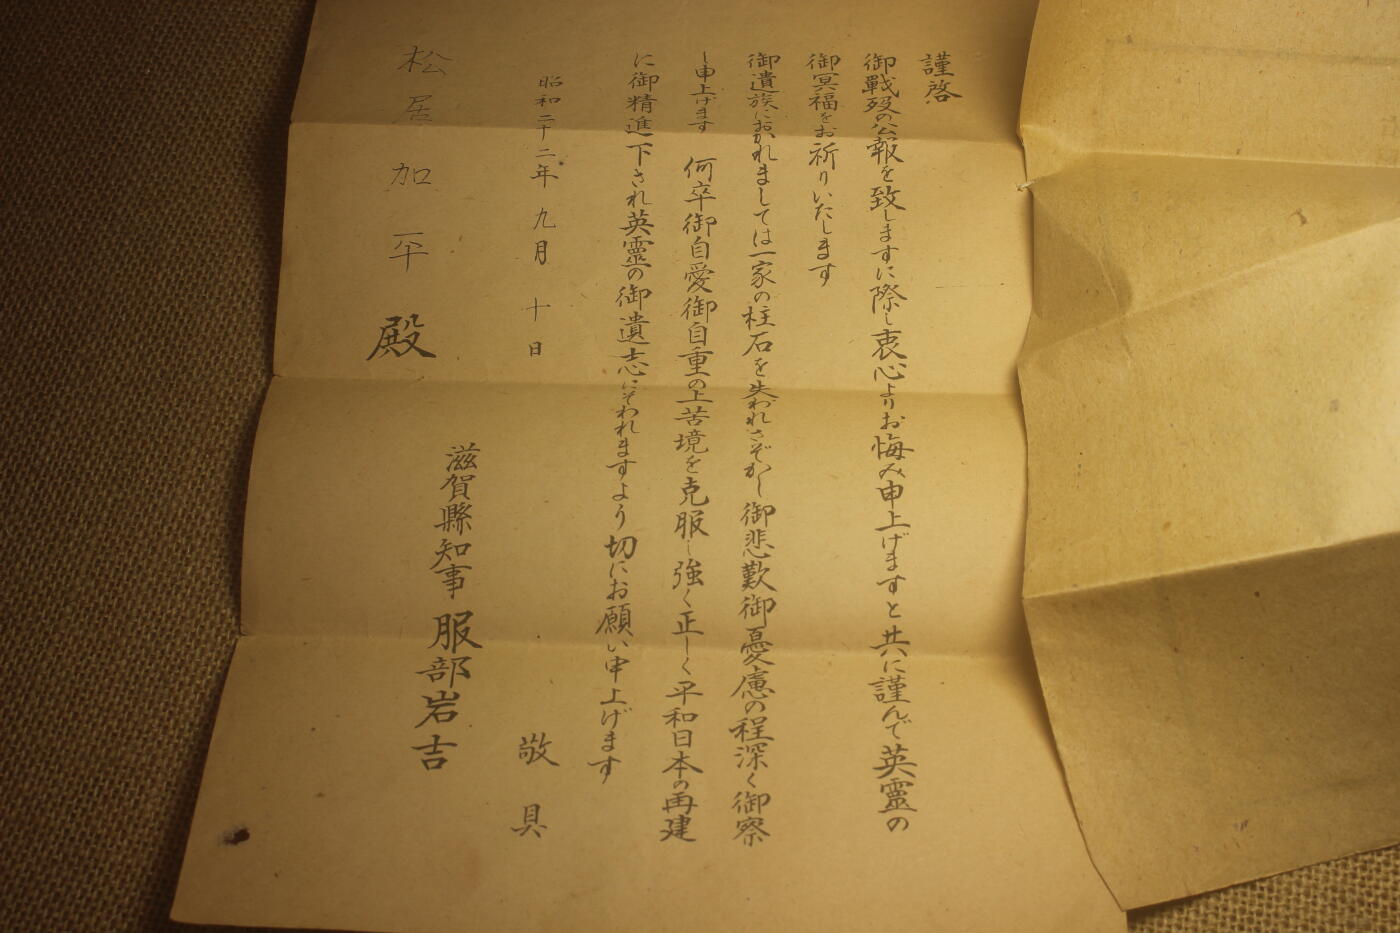 謹啓
御戰殁の公報を致しますに際し衷心よりお悔み申上げますと共に謹んで英靈の
御冥福をお祈りいたします
御遺族におかれましては一家の柱石を失われさぞかし御悲歎御憂慮の程深く御察
し申上げます 何卒御自愛御自重の上苦境を克服し強く正しく平和日本の再建
に御精進下され英靈の御遺志にそわれますよう切にお願い申上げます
敬具
昭和二十二年 九月 十日
滋賀縣知事 服部岩吉
松居加平殿